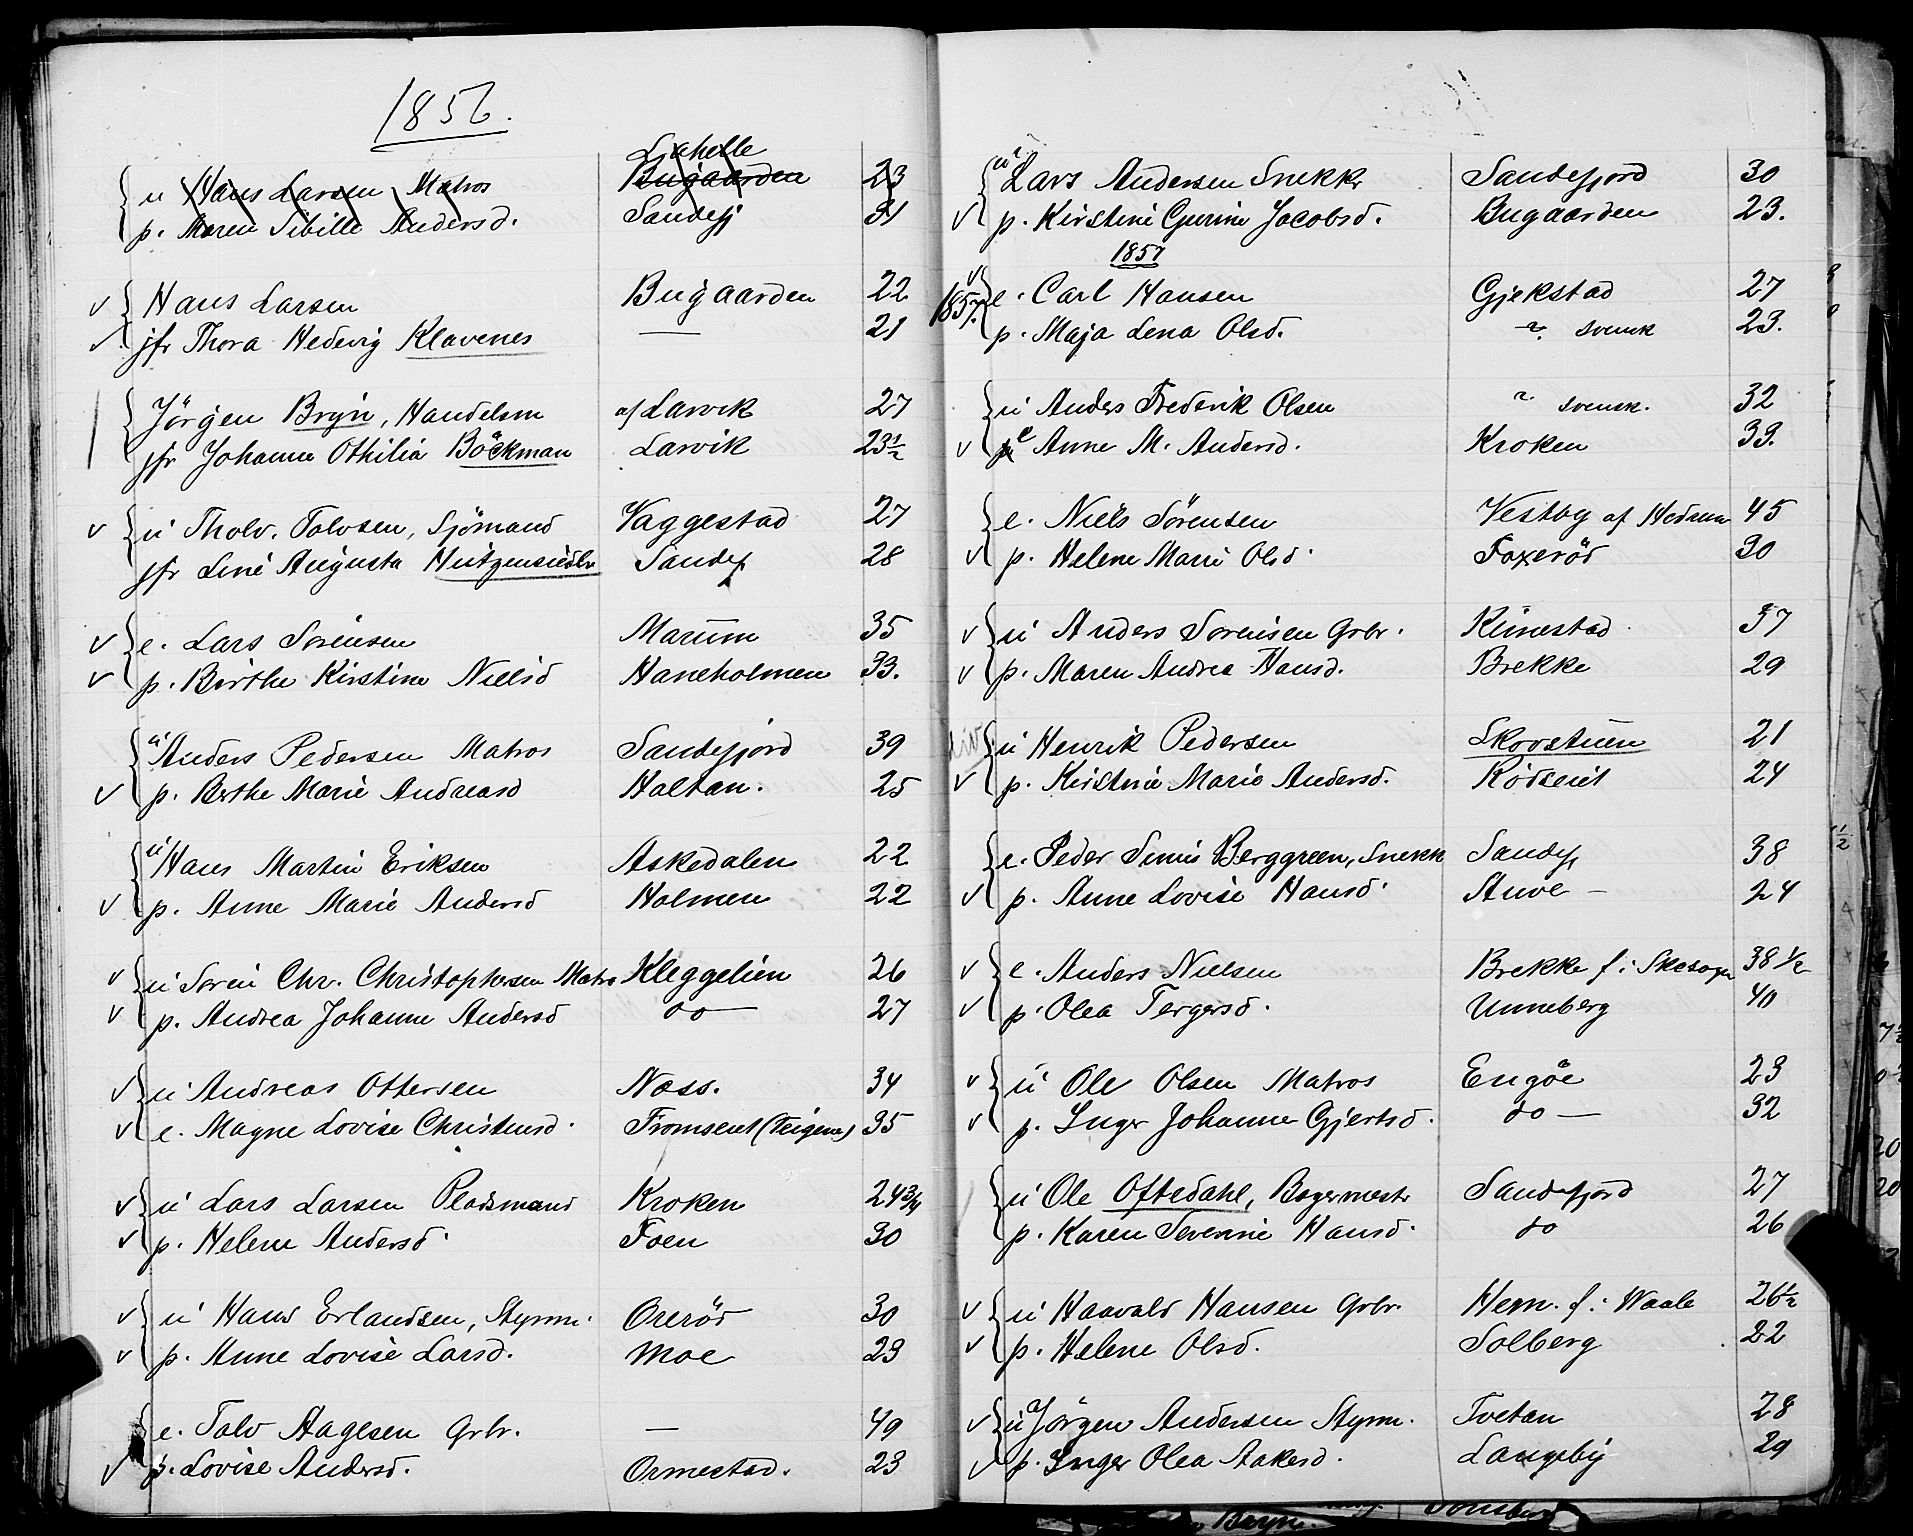 1856.
Ljahelle
u Hans Larsen Matros Bugaarden 23
p. Maren Sibille Andersd. Sandefj 31
Hans Larsen Bugaarden 22
jfr Thora Hedevig Klavenes — 21
Jörgen Bryn, Handelsm af Larvik 27
jfr Johanne Othilia Böckman Larvik 23 1/2
u Tholv. Tolvsen, Sjömand Vaggestad 27
jfr Line Augusta Sandef 28
e. Lars Sörensen Marum 35
p. Birthe Kirstine Nielsd Haneholmen 33.
u Anders Pedersen Matros Sandefjord 39
p. Berthe Marie Andreasd Haltan. 25
u Hans Martin Eriksen Askedalen 22
p. Anne Marie Andersd Holmen 22
u Soren Chr. Christophersen Matro Kleggelien 26
p. Andrea Johanne Andersd do — 27
u Andreas Ottersen Næss. 34
e. Magne Lovise Christensd. Fromseret (Teigene) 35
u Lars Larsen Pladsmand Kroken 24 3/4
p. Helene Andersd. Foen 30
u Hans Erlandsen, Styrm. Oreröd 30
p. Anne Lovise Larsd. Moe 23
e. Tolv Aagesen Grbr. — 49
p. Lovise Andersd. Ormestad. 23
u Lars Andersen Snekkr Sandefjord 30
p. Kirstine Gurine Jacobsd. Bugaarden 23.
1857
1857. e. Carl Hansen Gjekstad 27
p. Maja Lena Olsd. ? svensk 23.
u Anders Frederik Olsen ? svensk. 32
e Anne M. Andersd. Kroken 33.
e. Niels Sörensen Vestby af Hedrum 45
p. Helene Marie Olsd. Foxeröd 30
u Anders Sorensen Grbr. Klinestad 37
p. Maren Andrea Hansd. Brekke 29
u Henrik Pedersen Skovstuen 21
p. Kirstine Marie Andersd. Rödseret 24
e. Peder Simis Berggreen, Snekk Sandef 38
p. Anne Lovise Hansd. Auve — 24
e. Anders Nielsen Brekke f: Skesogn 38 1/2
p. Olea Tergersd. Unneberg 40
u Ole Olsen Matros Engöe 23
p. Inger Johanne Gjertsd. do — 32
u Ole Oftedahl, Bagermestr Sandefjord 27
p. Karen Severine Hansd. do 26
u Haavald Hansen Grbr. Hem. f: Waale 26 1/2
p. Helene Olsd. Solberg 22
u Jörgen Andersen Styrm. Tvetan 28
p. Inger Olea Aakesd. Langeby 29
Bryn.